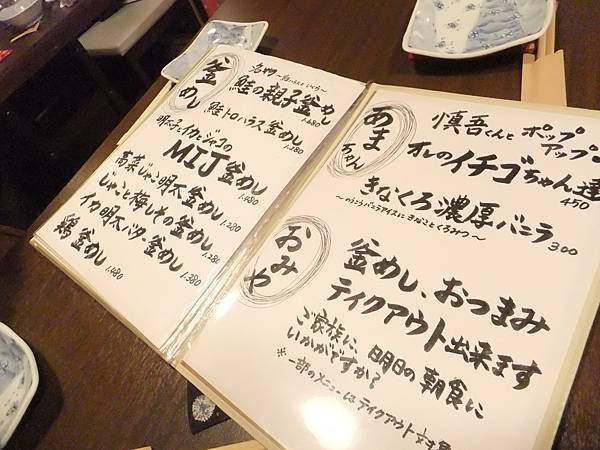 釜めし
名物
鮭の親子釜めし
1,680
鮭トロハラス釜めし
1,280
明太子とイカとジャコの
MIJ釜めし
1,480
高菜じゃこ明太釜めし
1,280
じゃこと梅しその釜めし
1,280
イカ明太バター釜めし
1,380
鶏釜めし
1,480
あまちゃん
慎吾くんと ポップアップ
オレのイチゴちゃん達
450
きなくろ濃厚バニラ
300
〜のうこうバニラアイスにきなことくろみつ〜
おみや
釜めし、おつまみ
テイクアウト出来ます
ご家族に、明日の朝食に
いかがですか?
※一部のメニューはテイクアウト対象